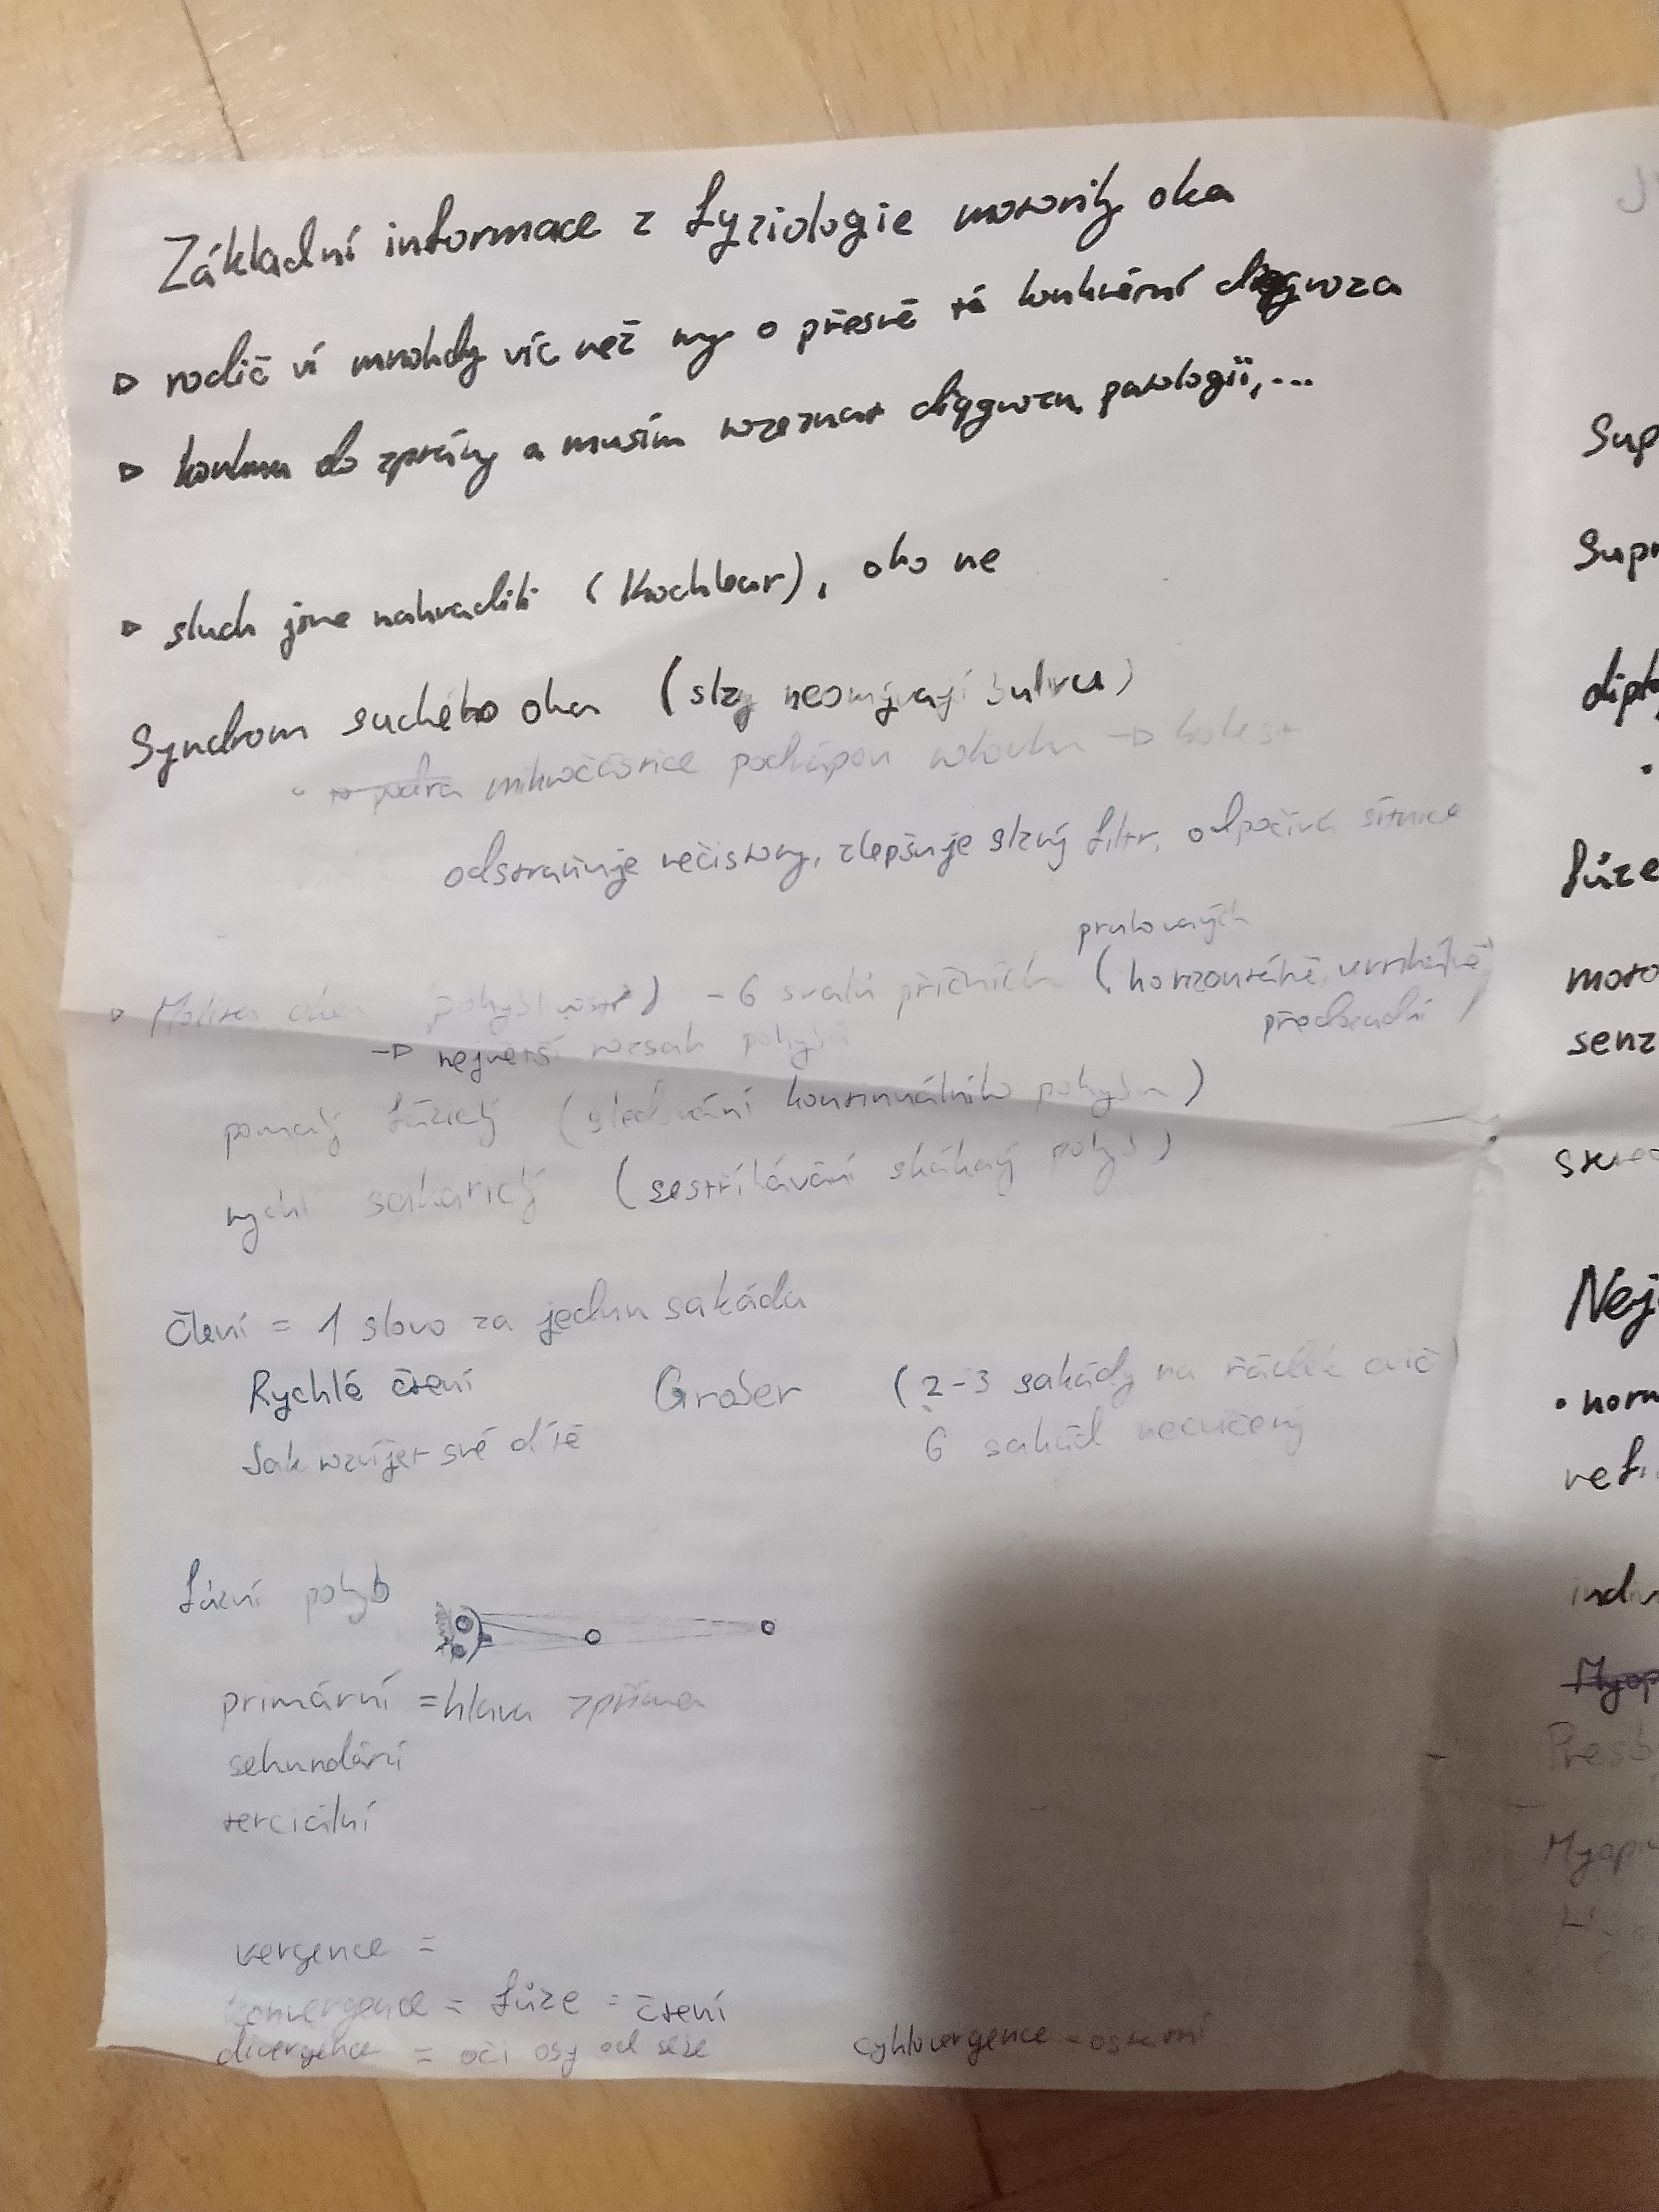 Základní informace z fyziologie motority oka
▷ rodič ví mnohdy víc než my o přesně té konkrétní diagnoza
▷ kouknu do zprávy a musím rozeznat diagnozu, patologii,...
▷ sluch jsme nahradili (Kochlear), oko ne
Syndrom suchého oka (slzy neomývají bulvu)
mikročástice podrápou rohovku → bolest
odstraňuje nečistoty, zlepšuje slzný filtr, odpočívá sítnice
pruhovaných
▷ pohyblivost) - 6 svalů příčních (horizontálně, vertikálně
předozadní
→ největší rozsah pohybů
pomalý fúzický (sledování kontinuálního pohybu)
rychlí sakarický (sestříhávání skákavý pohyb)
čtení = 1 slovo za jednu sakádu
Rychlé čtení Grober (2-3 sakády na řádek cvič)
Jak rozvíjet své dítě 6 sakád necvičený
fúzní pohyb
primární = hlava zpříma
sekundární
terciální
vergence =
konvergence = fúze = čtení
divergence = oči osy od sebe cyklovergence = ostatní
Sup
Supr
dipl
fúze
moto
senz
Nej
• norm
ref
indiv
Presb
Myopi